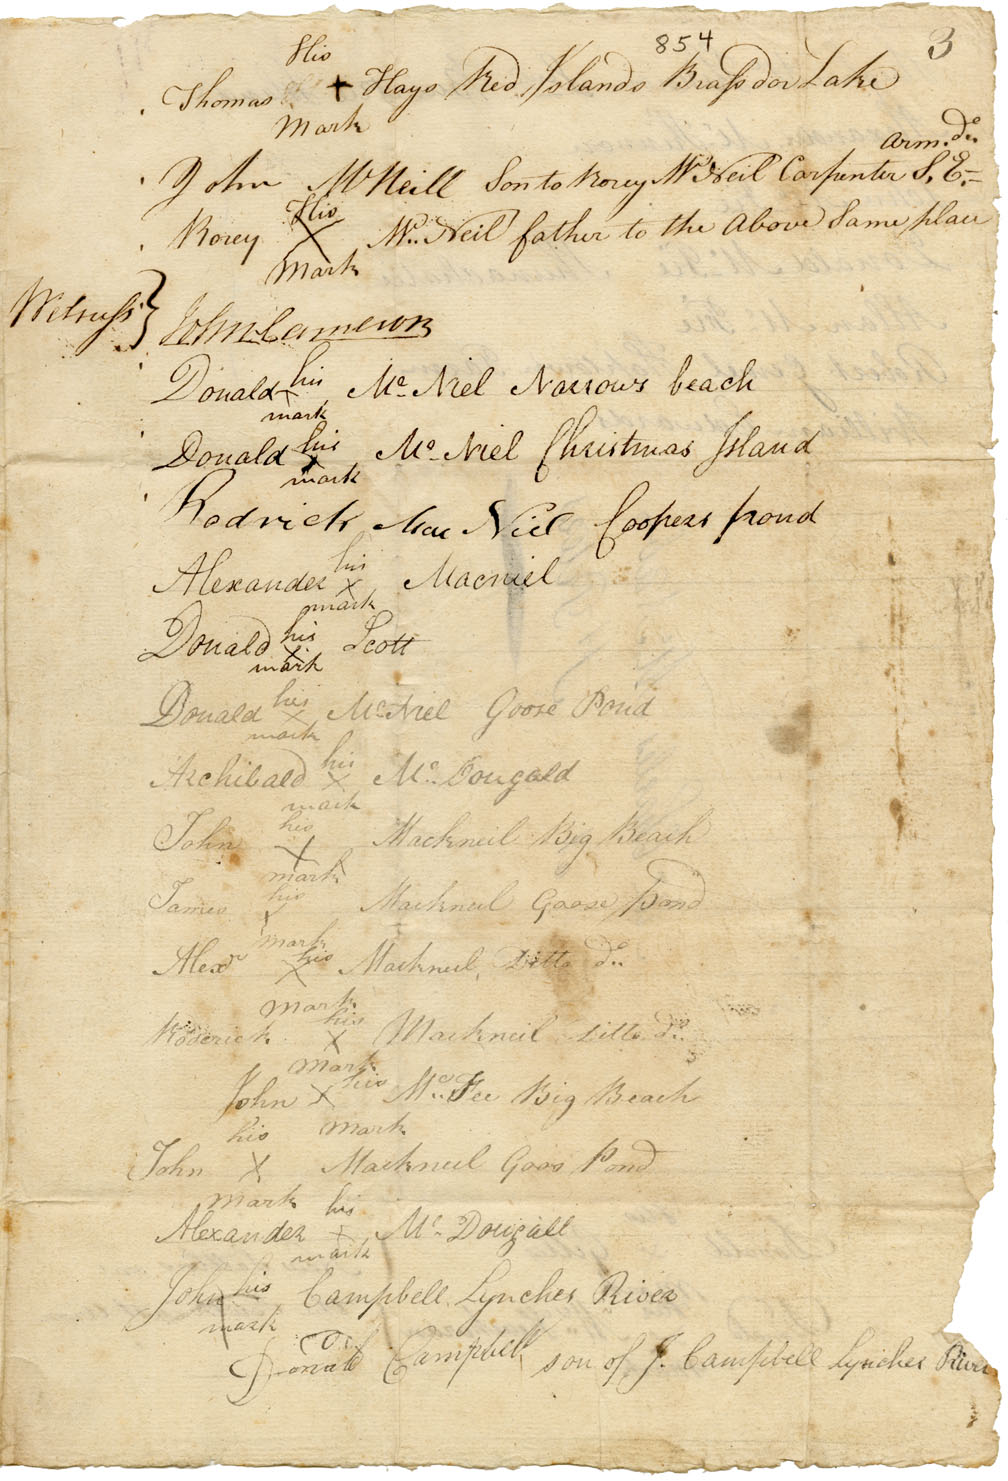 854
3
His
Thomas + Hays Red Islands Brassdor Lake
Mark
arm. do.
John McNeill Son to Rorey Mc Neil Carpenter S. E.
His
Rorey X Mc. Neil father to the above Same place
Mark
Witness } John Cameron
Donald his x mark Mc. Niel Narrows beach
Donald his x mark Mc. Niel Christmas Island
Rodrick Mac Niel Coopers pond
Alexander his x mark Macniel
Donald his x mark Scott
Donald his x mark Mc. Niel Goose Pond
Archibald his x mark Mc. Dougald
John his x mark Mackneil Big Beach
James his x mark Mackneil Goose pond
Alexr his x mark Mackneil, Ditto do.
Roderick his x mark Mackneil Ditto do.
John his x mark Mc. Fee Big Beach
John his x mark Mackneil Goos Pond
Alexander his x mark Mc. Dougall
John his mark Campbell Lynches River
Donald Campbell son of J. Campbell Lynches River